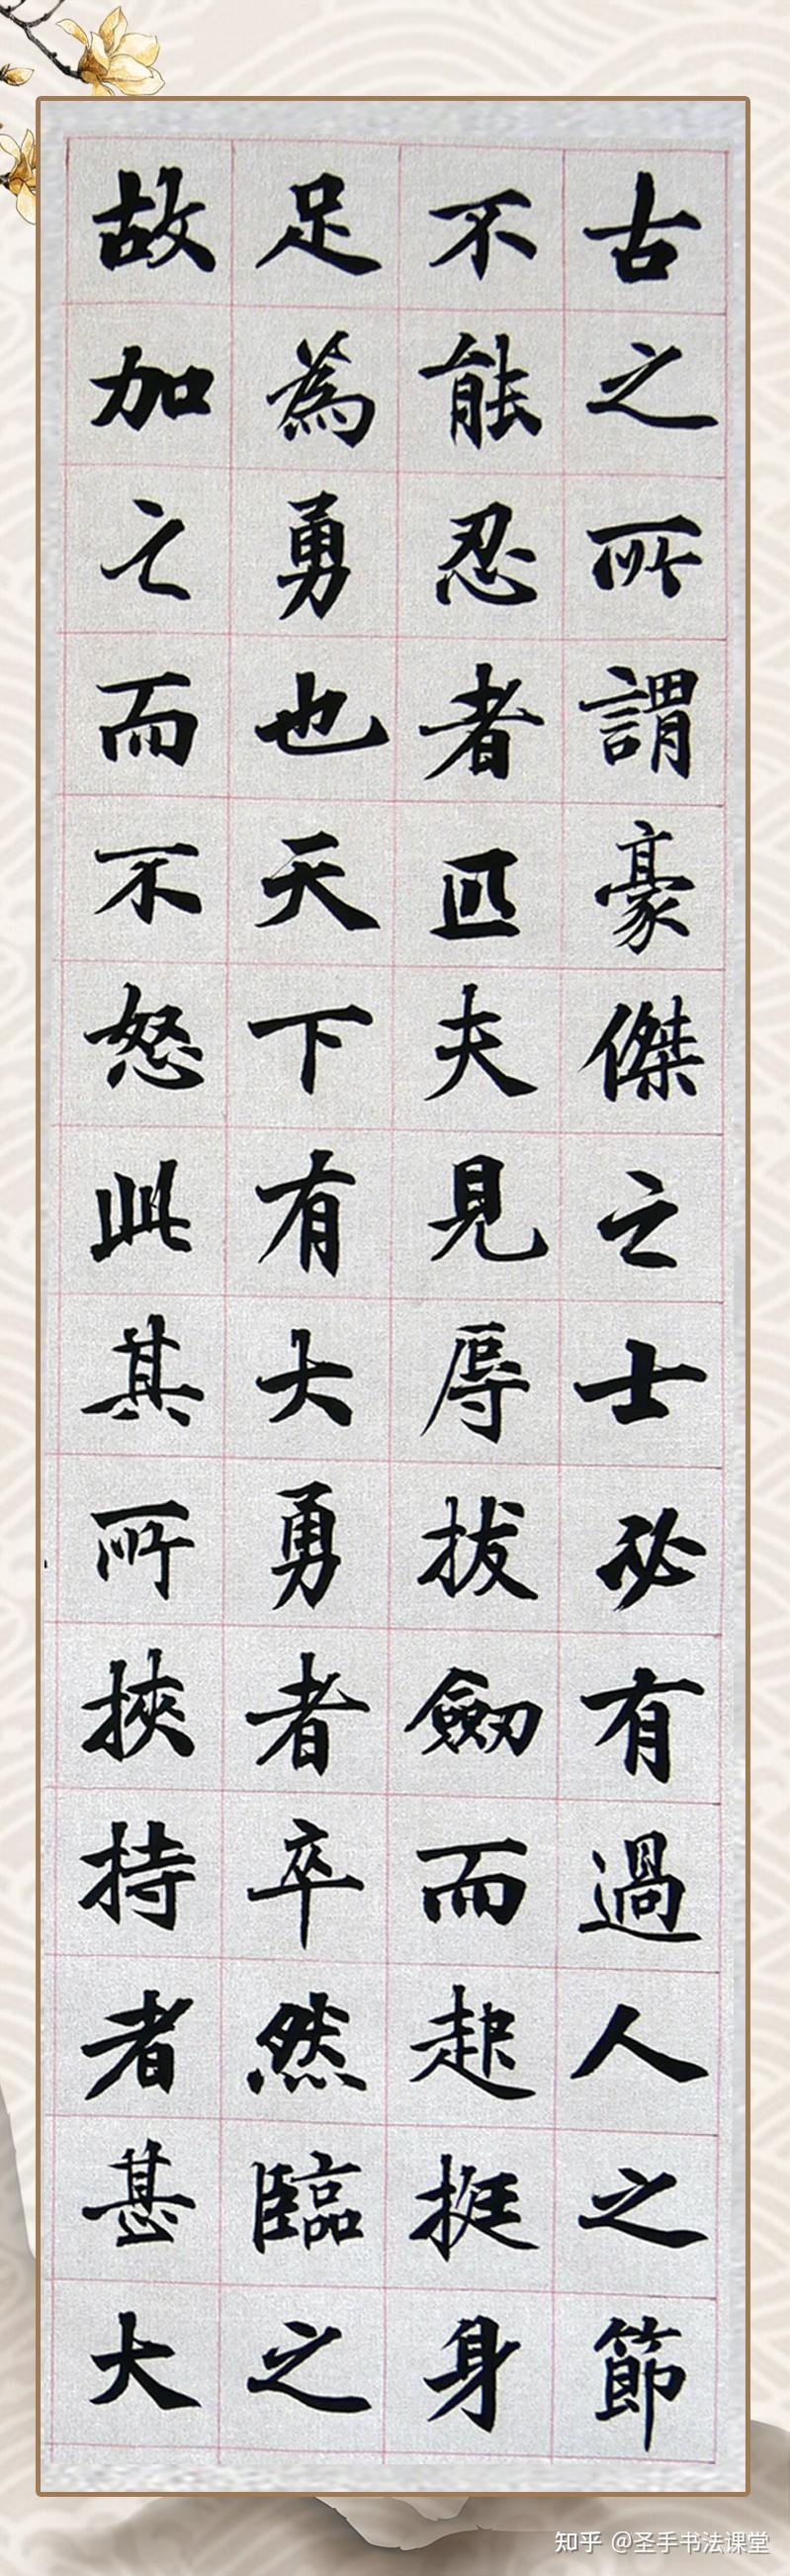 古之所謂豪傑之士必有過人之節
不能忍者匹夫見辱拔劒而起挺身
足為勇也天下有大勇者卒然臨之
故加之而不怒此其所挾持者甚大
知乎 @圣手书法课堂